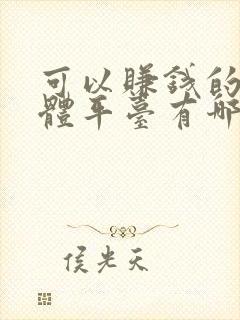 可以賺錢的
體平臺有哪
侯光天